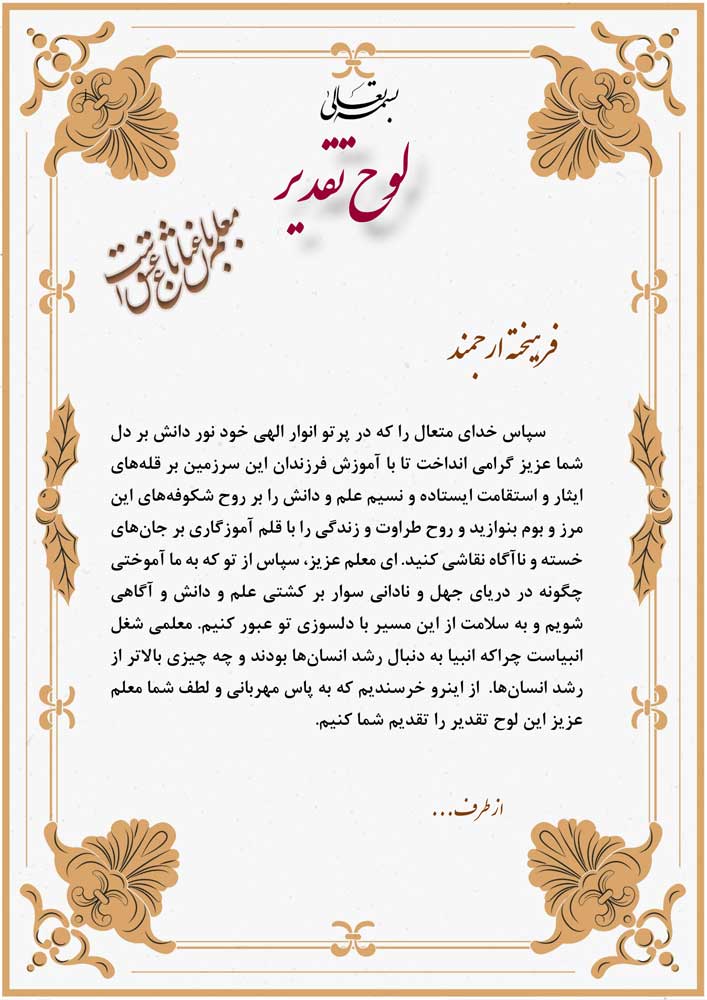 بسمه تعالی
لوح تقدیر
معلم باغبان باغ عشق است
فرهیختهٔ ارجمند
سپاس خدای متعال را که در پرتو انوار الهی خود نور دانش بر دل
شما عزیز گرامی انداخت تا با آموزش فرزندان این سرزمین بر قله‌های
ایثار و استقامت ایستاده و نسیم علم و دانش را بر روح شکوفه‌های این
مرز و بوم بنوازید و روح طراوت و زندگی را با قلم آموزگاری بر جان‌های
خسته و ناآگاه نقاشی کنید. ای معلم عزیز، سپاس از تو که به ما آموختی
چگونه در دریای جهل و نادانی سوار بر کشتی علم و دانش و آگاهی
شویم و به سلامت از این مسیر با دلسوزی تو عبور کنیم. معلمی شغل
انبیاست چراکه انبیا به دنبال رشد انسان‌ها بودند و چه چیزی بالاتر از
رشد انسان‌ها. از اینرو خرسندیم که به پاس مهربانی و لطف شما معلم
عزیز این لوح تقدیر را تقدیم شما کنیم.
از طرف...